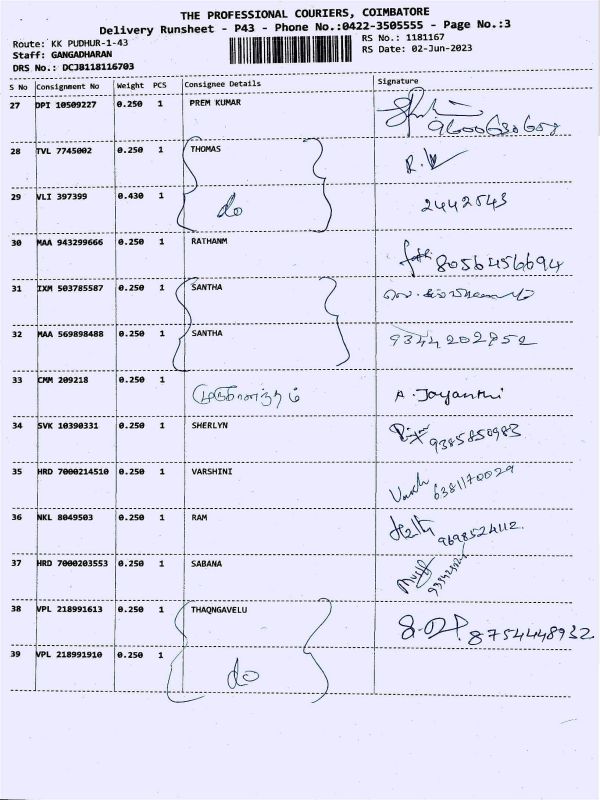 THE PROFESSIONAL COURIERS, COIMBATORE
Delivery Runsheet - P43 - Phone No.:0422-3505555 - Page No.:3
Route: KK PUDHUR-1-43
RS No.: 1181167
Staff: GANGADHARAN
RS Date: 02-Jun-2023
DRS No.: DCJB118116703
S No Consignment No Weight PCS Consignee Details Signature
27 DPI 10509227 0.250 1 PREM KUMAR
9600630608
28 TVL 7745002 0.250 1 THOMAS
29 VLI 397399 0.430 1 do 2442543
30 MAA 943299666 0.250 1 RATHANM 8056456694
31 IXM 503785587 0.250 1 SANTHA
32 MAA 569898488 0.250 1 SANTHA 9344202952
33 CMM 209218 0.250 1 A. Jayanthi
34 SVK 10390331 0.250 1 SHERLYN 9385850983
35 HRD 7000214510 0.250 1 VARSHINI 6381170029
36 NKL 8049503 0.250 1 RAM 9698524112.
37 HRD 7000203553 0.250 1 SABANA
38 VPL 218991613 0.250 1 THAQNGAVELU 8754448932
39 VPL 218991910 0.250 1 do